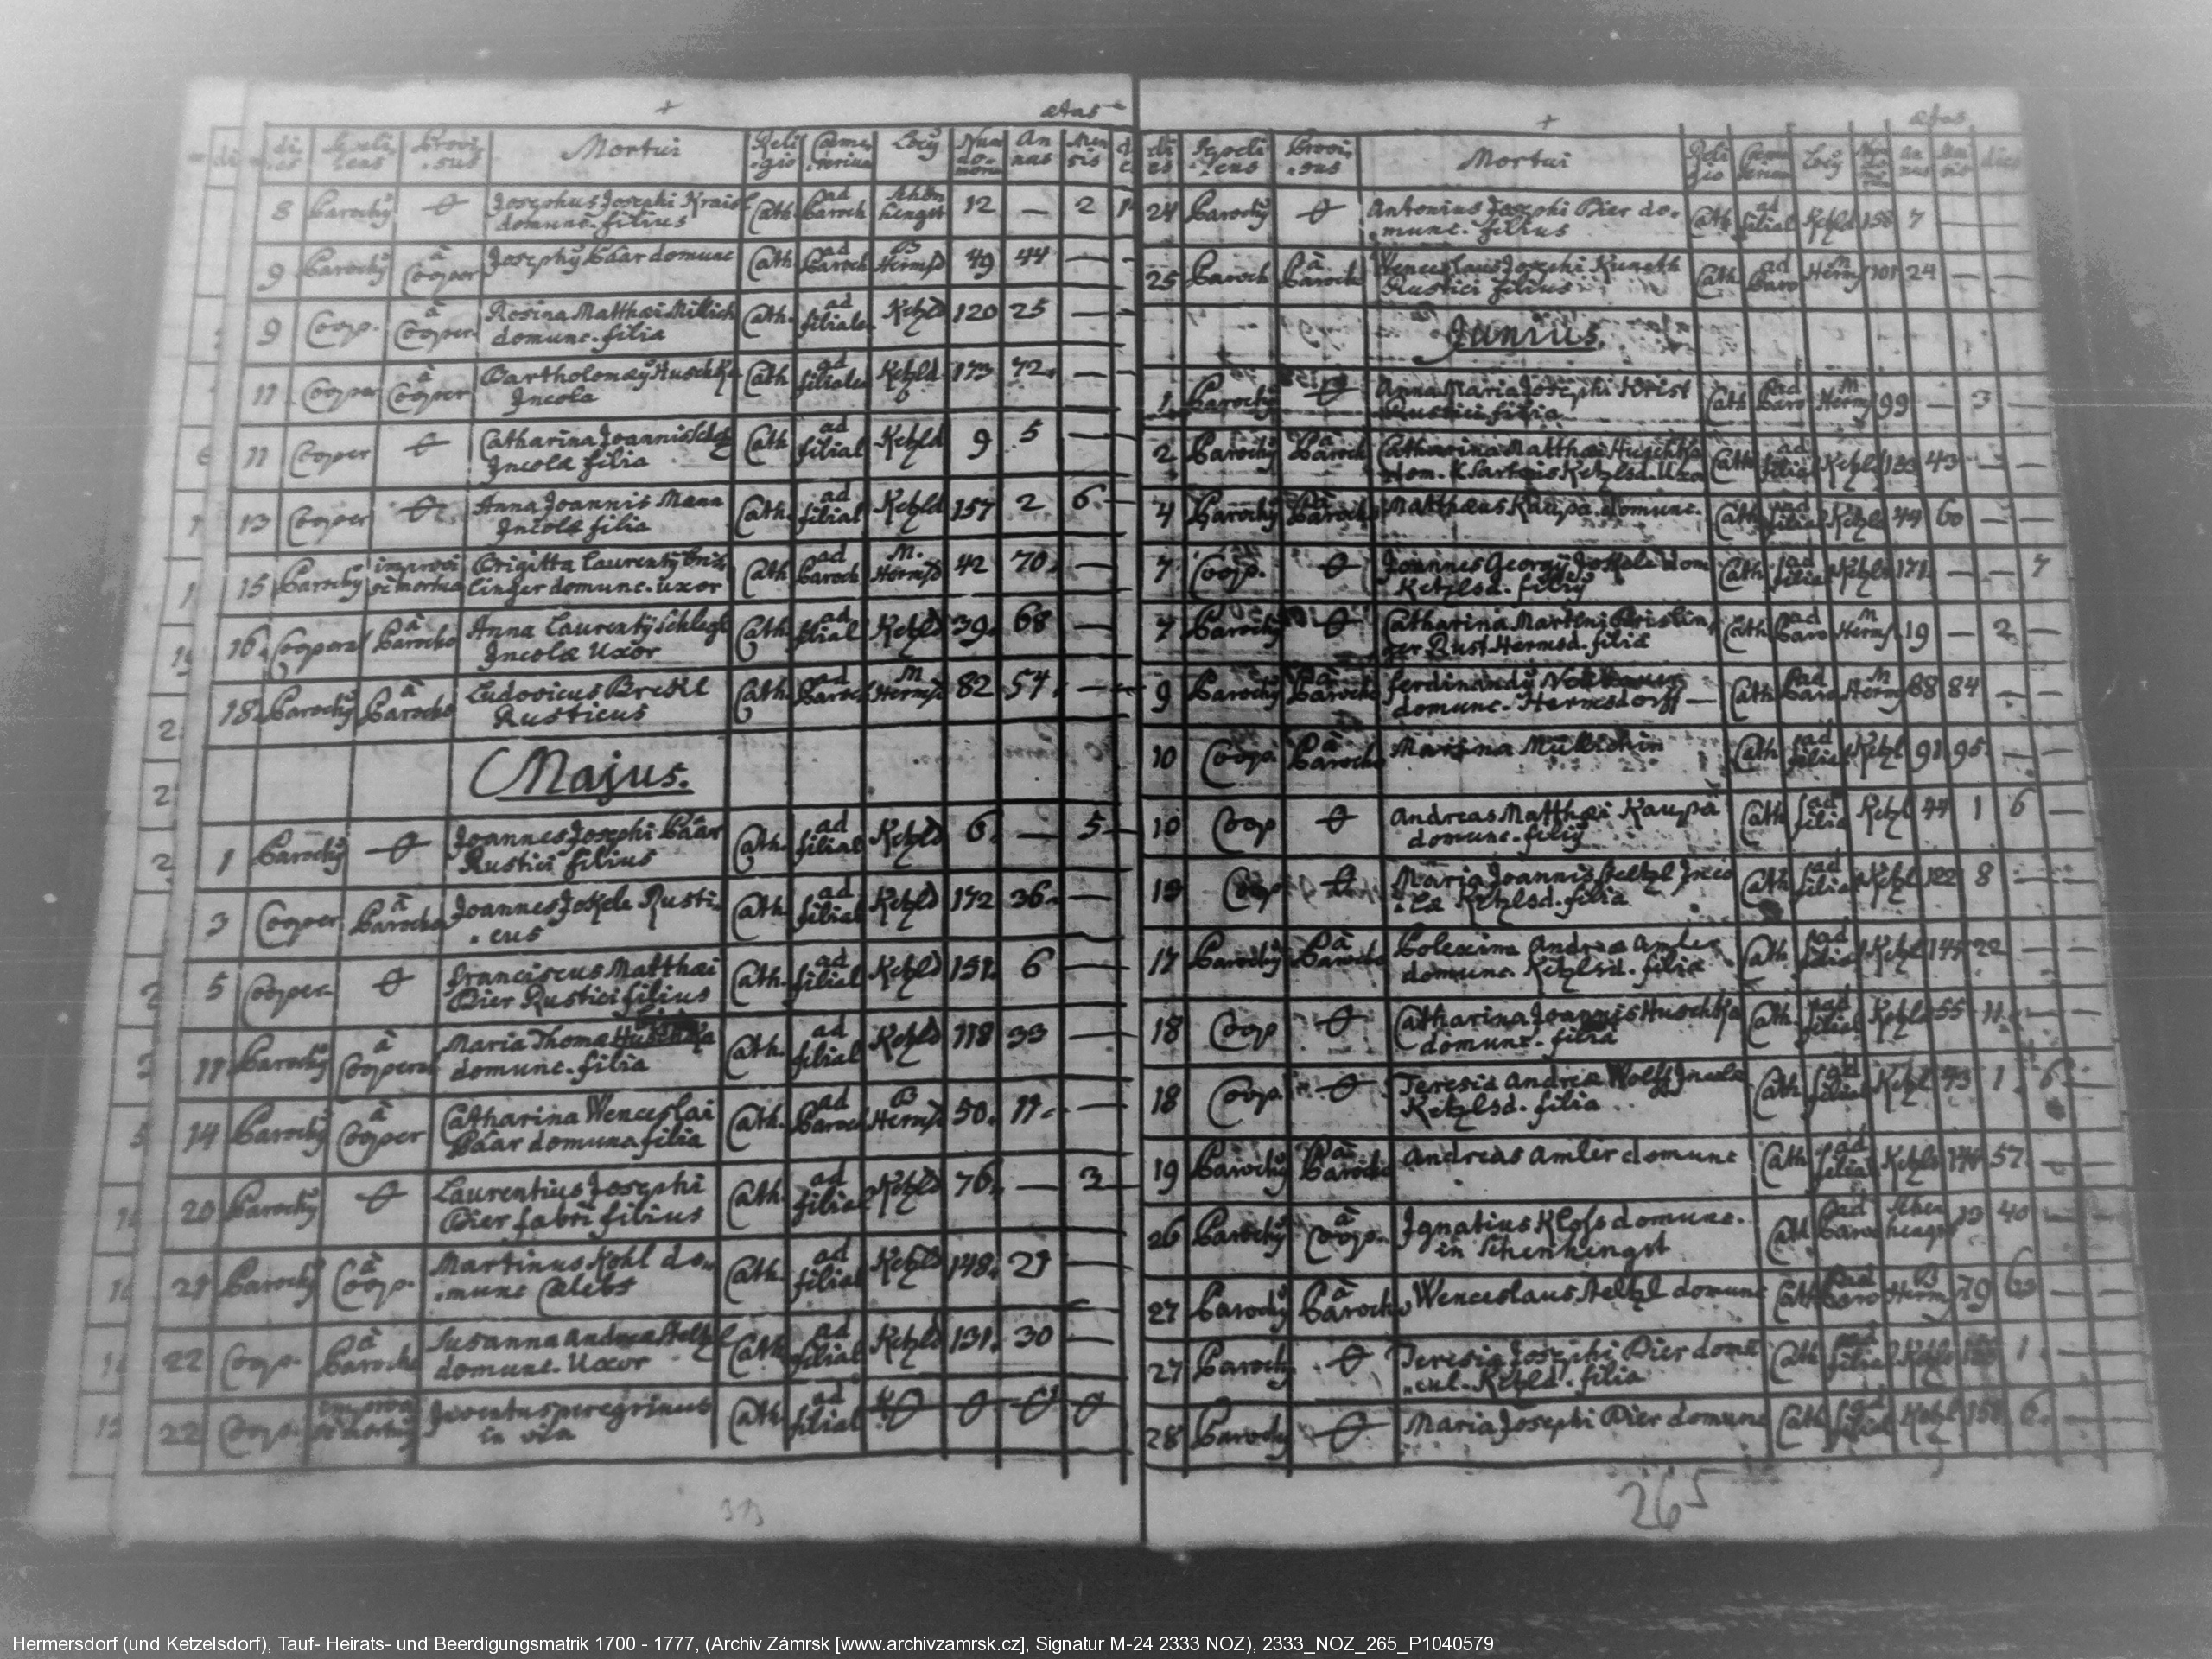 + ætas
di es Sepeli- iens Provi- sus Mortui Reli- gio Cæme- terium Locus Num domus An nus Men sis
8 Parochus Josephus Josephi domunc. filius Cath ad Paroch Schön hengst 12 — 2
9 Parochus à Cooper Josephus Paar domunc Cath ad Paroch B Hermsd 49 44 —
9 Coop. à Cooper Rosina Matthæi Millich domunc. filia Cath. ad filialem Ketzld 120 25 —
11 Cooper à Cooper Bartholomæus Huschka Incola Cath ad filialem Ketzld 173 72. —
11 Cooper Catharina Joannis Incolæ filia Cath ad filial Ketzld 9 5 —
13 Cooper Anna Joannis Incolæ filia Cath. ad filial Ketzld 157 2 6.
15 Parochus improvi se mortua Brigitta Laurentÿ Bris- linger domunc. uxor Cath ad Paroch M. Hermsd 42 70. —
16. Cooper à Parocho Anna Laurentÿ Schlegl Incolæ Uxor Cath. ad filial Ketzld 39. 68 —
18. Parochus à Parocho Ludovicus Rusticus Cath. ad Paroch M Hermsd 82 54. —
Majus.
1 Parochus Joannes Josephi Paar Rustici filius Cath. ad filial Ketzld 6. — 5
3 Cooper à Parocho Joannes Joskele Rusti- cus Cath. ad filial Ketzld 172 36. —
5 Cooper Franciscus Matthæi Pier Rustici filius Cath. ad filial Ketzld 151. 6 —
11. Parochus à Cooper Maria Thomæ Huschka domunc. filia Cath. ad filial Ketzld 118 33 —
14 Parochus à Cooper Catharina Wenceslai Paar domunc. filia Cath. ad Paroch B Hermsd 50. 19. —
20 Parochus Laurentius Josephi Pier fabri filius Cath. ad filial Ketzld 76. — 3
21 Parochus à Coop. Martinus Kohl do- munc Cælebs Cath. ad filial Ketzld 148. 21 —
22 Coop. à Parocho Susanna Andreæ Steltzl domunc. Uxor Cath. ad filial Ketzld 131. 30 —
22 Coop. Inventus peregrinus in via Cath. ad filial 0 0 0 0
313
+ ætas
di es Sepeli iens Provi- sus Mortui Reli gio Cæme terium Locus Num domus an nus dies
24 Parochus Antonius Josephi Pier do- munc. filius Cath ad filial Ketzld 158 7
25 Paroch à Parocho Wenceslaus Josephi Kuneth Rustici filius Cath. ad Paro M Herms 101 24 — —
Junius.
1 Parochus Anna Maria Josephi Rustici filia Cath ad Paro M Herms 99 — 3 —
2 Parochus à Paroch Catharina Matthæi Huschka Cath ad filial Ketzl 43 — —
4 Parochus à Parocho Matthæus Kaupa domunc. Cath. ad filial Ketzl 44 60 — —
7 Coop. Joannes Georgÿ Joskele dom Ketzlsd. filius Cath. ad filial Ketzl 171 — — 7
7 Parochus Catharina Martini Brislin- ger Rust. Hermsd. filia Cath ad Paro M Herms 19 — 2 —
9 Parochus à Parocho Ferdinandus domunc. Hermsdorff — Cath ad Paro M Herms 88 84 — —
10 Coop. à Parocho Cath ad filial Ketzl 91 95. — —
10 Coop Andreas Matthæi Kaupa domunc. filius Cath ad filial Ketzl 44 1 6 —
Maria Joannis Inco- læ Ketzlsd. filia Cath ad filial Ketzl 122 8 — —
17 Parochus à Parocho Polexina Andreæ Amler domunc. Ketzlsd. filia Cath. ad filial Ketzl 22 — —
18 Coop Catharina Joannis Huschka domunc. filia Cath. ad filial Ketzl 55 11. — —
18 Coop. Teresia Andreæ Wolff Incolæ Ketzlsd. filia Cath ad filial Ketzl 43 1. 6.
19 Parochus à Parocho Andreas Amler domunc Cath ad filial Ketzl 57 — —
26 Parochus à Coop. Ignatius Kloss domunc. in Schenhengst Cath ad Paro Schen hengst 13 40 — —
27 Parochus à Parocho Wenceslaus Steltzl domunc Cath ad Paro B Herms 79 —
27 Parochus Teresia Josephi Pier domu Ketzld. filia Cath ad filial 1. —
28 Parochus Maria Josephi Pier domunc Cath ad filial Ketzl 158 6.
265
Hermersdorf (und Ketzelsdorf), Tauf- Heirats- und Beerdigungsmatrik 1700 - 1777, (Archiv Zámrsk [www.archivzamrsk.cz], Signatur M-24 2333 NOZ), 2333_NOZ_265_P1040579